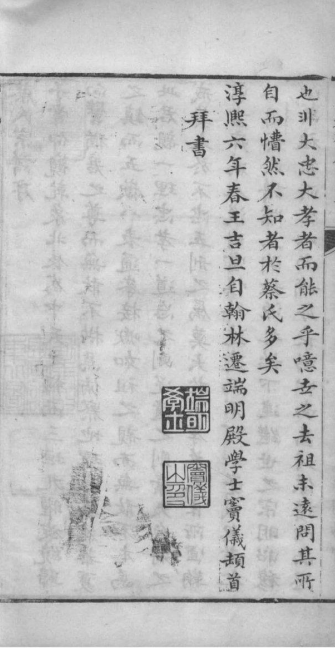 也非大忠大孝者而能之乎噫世之去祖未遠問其所
自而懵然不知者於蔡氏多矣
淳熙六年春王吉旦自翰林遷端明殿學士竇儀頓首
拜書
竇儀
之印